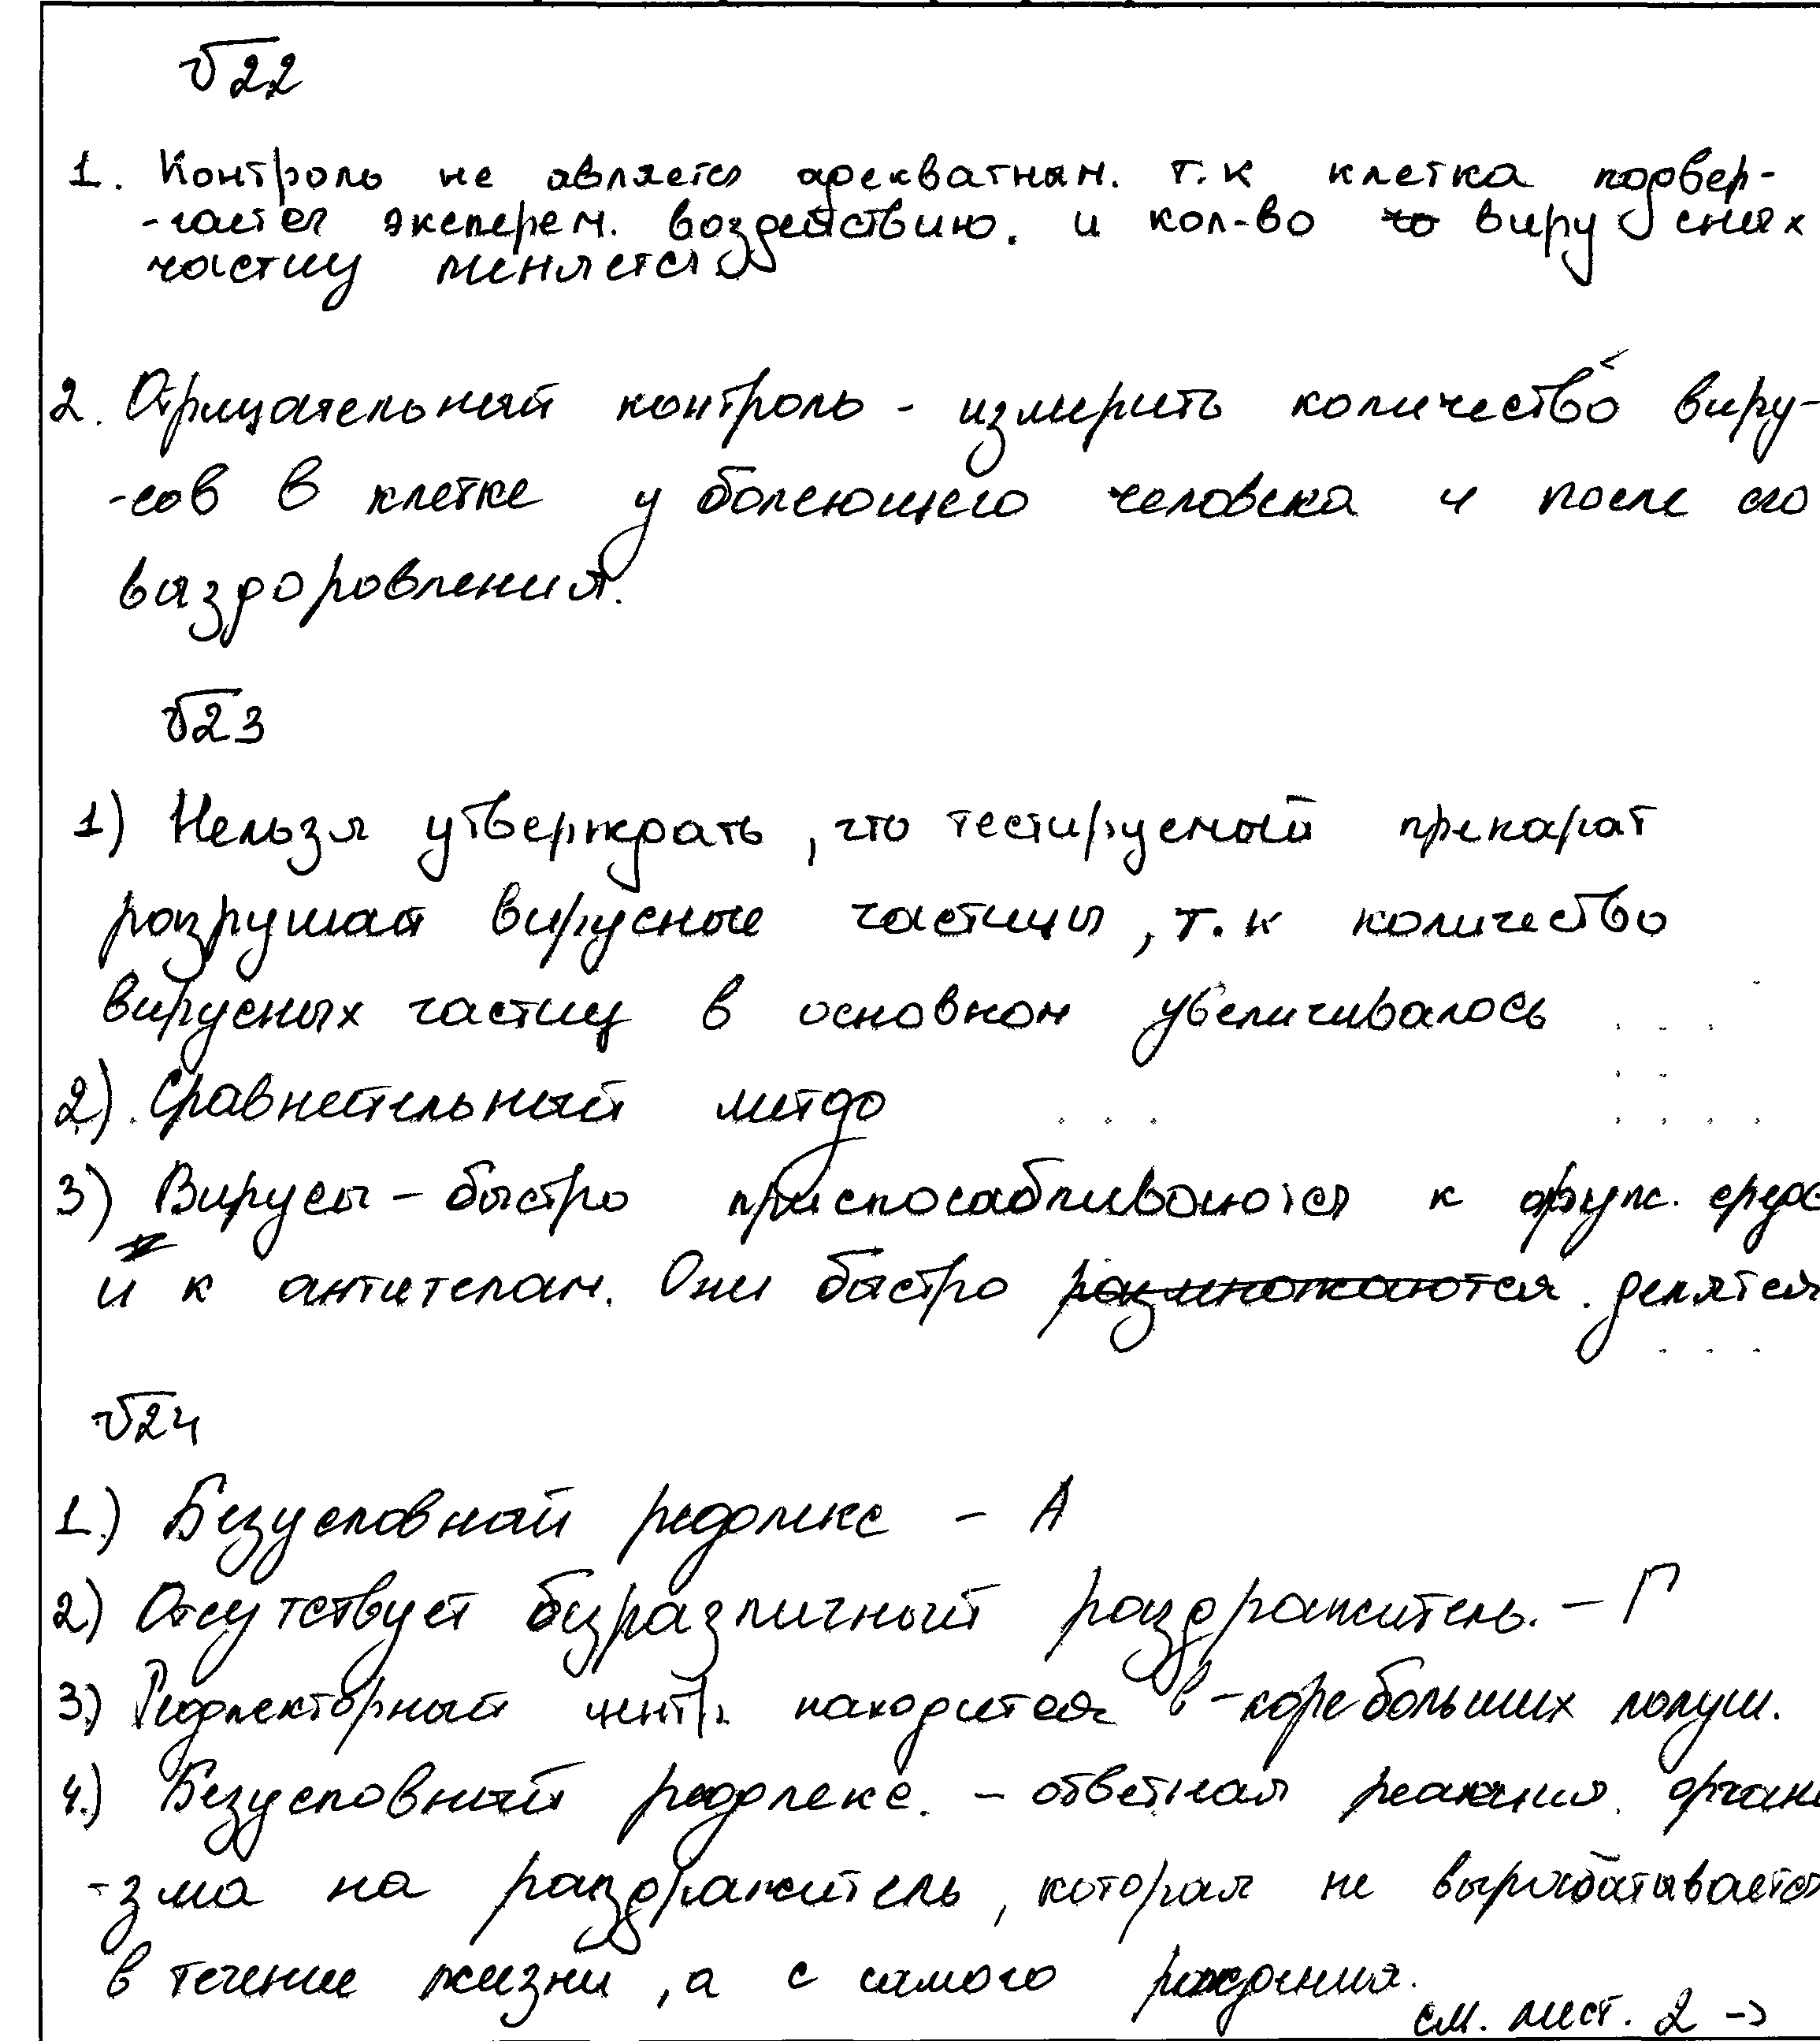 √22
1. Контроль не является адекватным. т.к клетка подвер-
-гается эксперем. воздействию. и кол-во вирусных
частиц меняется.
2. Отрицательный контроль - измерить количество виру-
-сов в клетке у болеющего человека и после его
выздоровления.
√23
1) Нельзя утверждать, что тестируемый препарат
разрушает вирусные частицы, т.к количество
вирусных частиц в основном увеличивалось
2). Сравнетельный митдо
3) Вирусы - быстро приспосабливоются к окруж. среде
и к антителам. Они быстро размножаются. делятся
√24
1.) Безусловный рефлекс - А
2) Отсутствует безразличный раздражитель. - Г
3.) Рефлекторный центр. находится в - коре больших полуш.
4.) Безусловный рефлекс. - ответная реакция. органи
-зма на раздражитель, которая не вырабатывается
в течение жизни, а с самого рождения.
см. лист. 2 ->